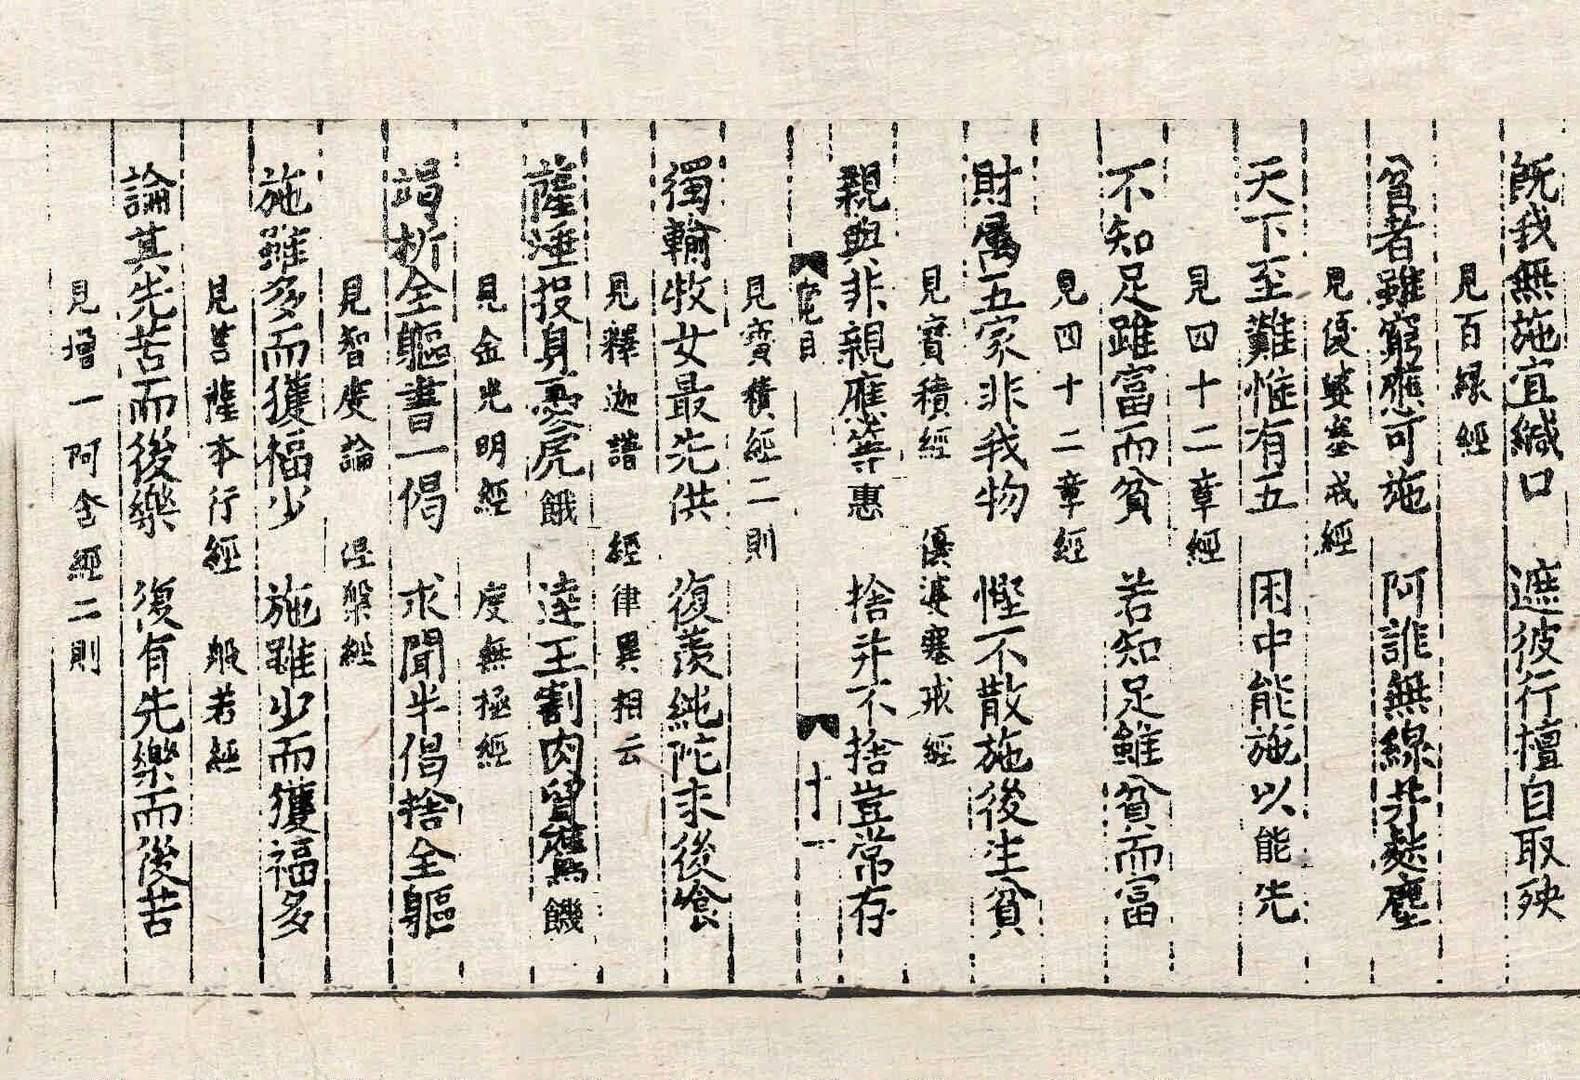 旣我無施宜緘口　遮彼行檀自取殃
見百緣經
貧者雖窮應可施　阿誰無線并麨塵
見優婆塞戒經
天下至難惟有五　困中能施以能先
見四十二章經
不知足雖富而貧　若知足雖貧而富
見四十二章經
財屬五家非我物　慳不散施後生貧
見寶積經　優婆塞戒經
親與非親應等惠　捨并不捨豈常存
目
十一
見寶積經二則
獨輸牧女最先供　復羨純陀末後飡
見釋迦譜　經律異相云
薩埵投身憂虎餓　達王割肉貿鷹饑
見金光明經　度無極經
竭析全軀書一偈　求聞半偈捨全軀
見智度論　涅槃經
施雖多而獲福少　施雖少而獲福多
見菩薩本行經　般若經
論其先苦而後樂　復有先樂而後苦
見增一阿含經二則